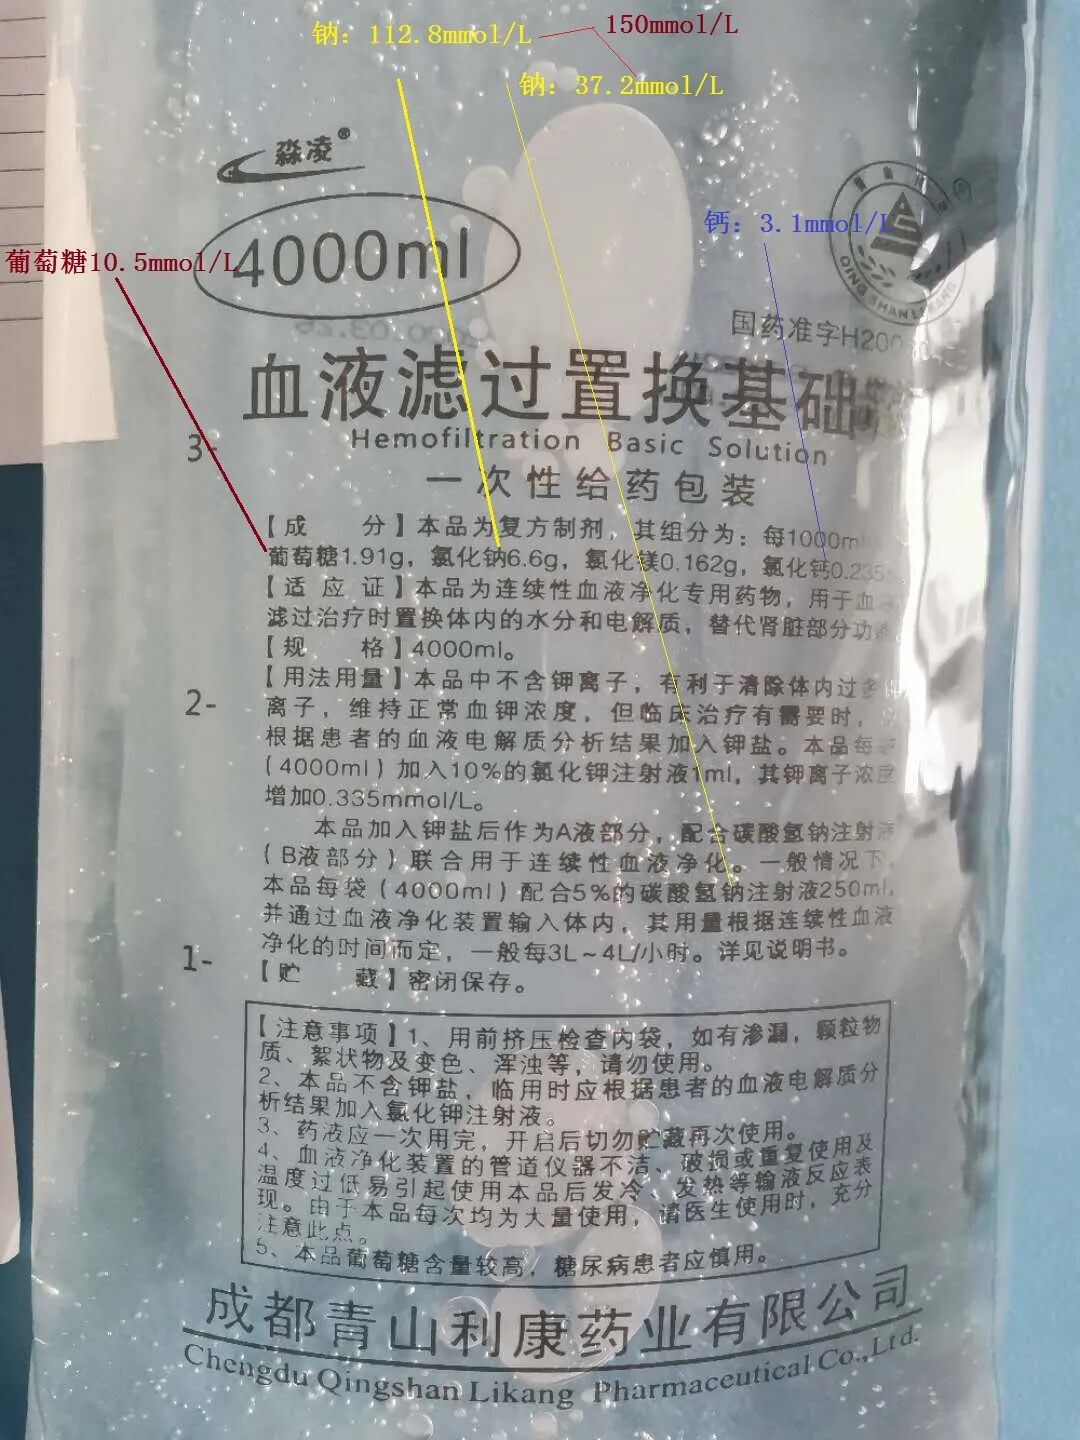 钠：112.8mmol/L
150mmol/L
钠：37.2mmol/L
淼凌®
钙：3.1mmol/L
QING SHAN LI KANG
葡萄糖10.5mmol/L
4000ml
国药准字H200
血液滤过置换基础
Hemofiltration Basic Solution
一次性给药包装
3-
【成 分】本品为复方制剂，其组分为：每1000ml
葡萄糖1.91g，氯化钠6.6g，氯化镁0.162g，氯化钙0.235
【适 应 证】本品为连续性血液净化专用药物，用于血
滤过治疗时置换体内的水分和电解质，替代肾脏部分功
【规 格】4000ml。
【用法用量】本品中不含钾离子，有利于清除体内过多
2-
离子，维持正常血钾浓度，但临床治疗有需要时，
根据患者的血液电解质分析结果加入钾盐。本品每
(4000ml）加入10%的氯化钾注射液1ml，其钾离子浓度
增加0.335mmol/L。
本品加入钾盐后作为A液部分，配合碳酸氢钠注射
（B液部分）联合用于连续性血液净化。一般情况下，
本品每袋（4000ml）配合5%的碳酸氢钠注射液250ml，
并通过血液净化装置输入体内，其用量根据连续性血液
1-
净化的时间而定，一般每3L～4L/小时。详见说明书。
【贮 藏】密闭保存。
【注意事项】1、用前挤压检查内袋，如有渗漏，颗粒物
质、絮状物及变色、浑浊等，请勿使用。
2、本品不含钾盐，临用时应根据患者的血液电解质分
析结果加入氯化钾注射液。
3、药液应一次用完，开启后切勿贮藏再次使用。
4、血液净化装置的管道仪器不洁、破损或重复使用及
温度过低易引起使用本品后发冷、发热等输液反应表
现。由于本品每次均为大量使用，请医生使用时，充分
注意此点。
5、本品葡萄糖含量较高，糖尿病患者应慎用。
成都青山利康药业有限公司
Chengdu Qingshan Likang Pharmaceutical Co.,Ltd.